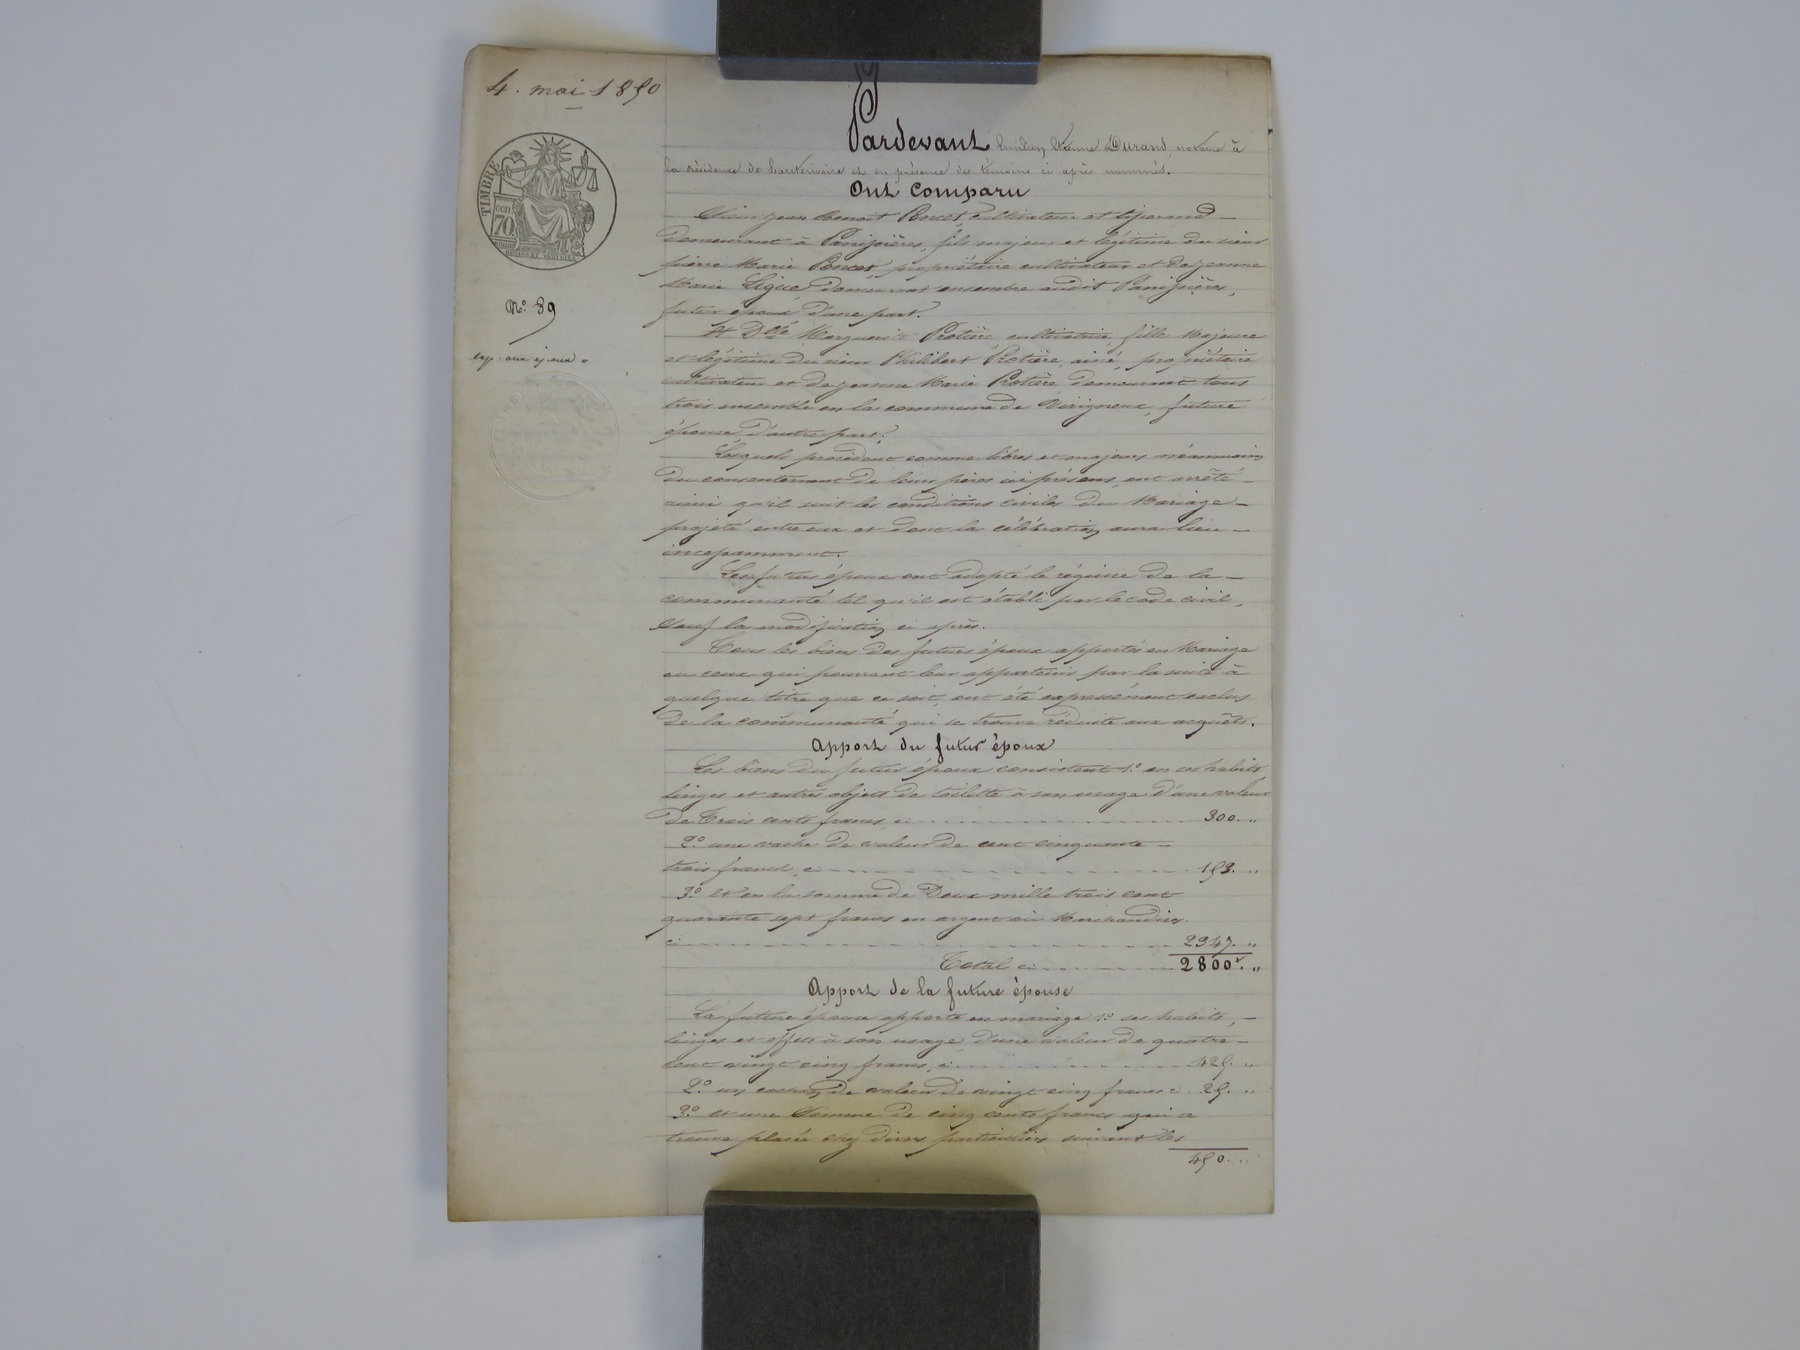 4. mai 1850
Pardevant Durand, notaire à
la résidence de et en présence des témoins ci après nommés.
Ont Comparu
jean Benoit Poncet cultivateur et tisserand
demeurant à Panissières, fils majeur et légitime du sieur
pierre Marie Poncet, propriétaire cultivateur et de jeanne
Marie demeurant ensemble audit Panissières,
futur époux d'une part.
TIMBRE
70.
No. 89
exp. aux époux
Et Dlle Marguerite Protière cultivatrice, fille Majeure
et légitime du sieur Philibert Protière, ainé, propriétaire
cultivateur et de jeanne Marie Protière demeurant tous
trois ensemble en la commune de Virigneux, future
épouse d'autre part.
Lesquels procédant comme libres et majeurs néanmoins
du consentement de leurs pères ici présens, ont arrêté
ainsi qu'il suit les conditions civiles du Mariage
projeté entre eux et dont la célébration aura lieu
incessamment.
Les futurs époux ont adopté le régime de la
communauté tel qu'il est établi par le code civil,
sauf la modification ci après.
Tous les biens des futurs époux apportés en Mariage
ou ceux qui pourront leur appartenir par la suite à
quelque titre que ce soit, ont été expressément exclus
de la communauté qui se trouve réduite aux acquêts.
Apport du futur époux
Les biens du futur époux consistent 1o en ses habits
linges et autres objets de toilette à son usage d'une valeur
de Trois cents francs, ci 300. "
2o une vache de valeur de cent cinquante
trois francs, ci 153. "
3o Et en la somme de Deux mille trois cent
quarante sept francs en argent ou Marchandises
ci 2347. "
Total ci 2800f. "
Apport de la future épouse
La future épouse apporte en mariage 1o ses habits,
linges et effets à son usage, d'une valeur de quatre
cent vingt cinq francs, ci 425. "
2o un de valeur de vingt cinq francs ci 25. "
3o et une Somme de cinq cents francs qui se
trouve placée chez divers particuliers suivant les
450. "